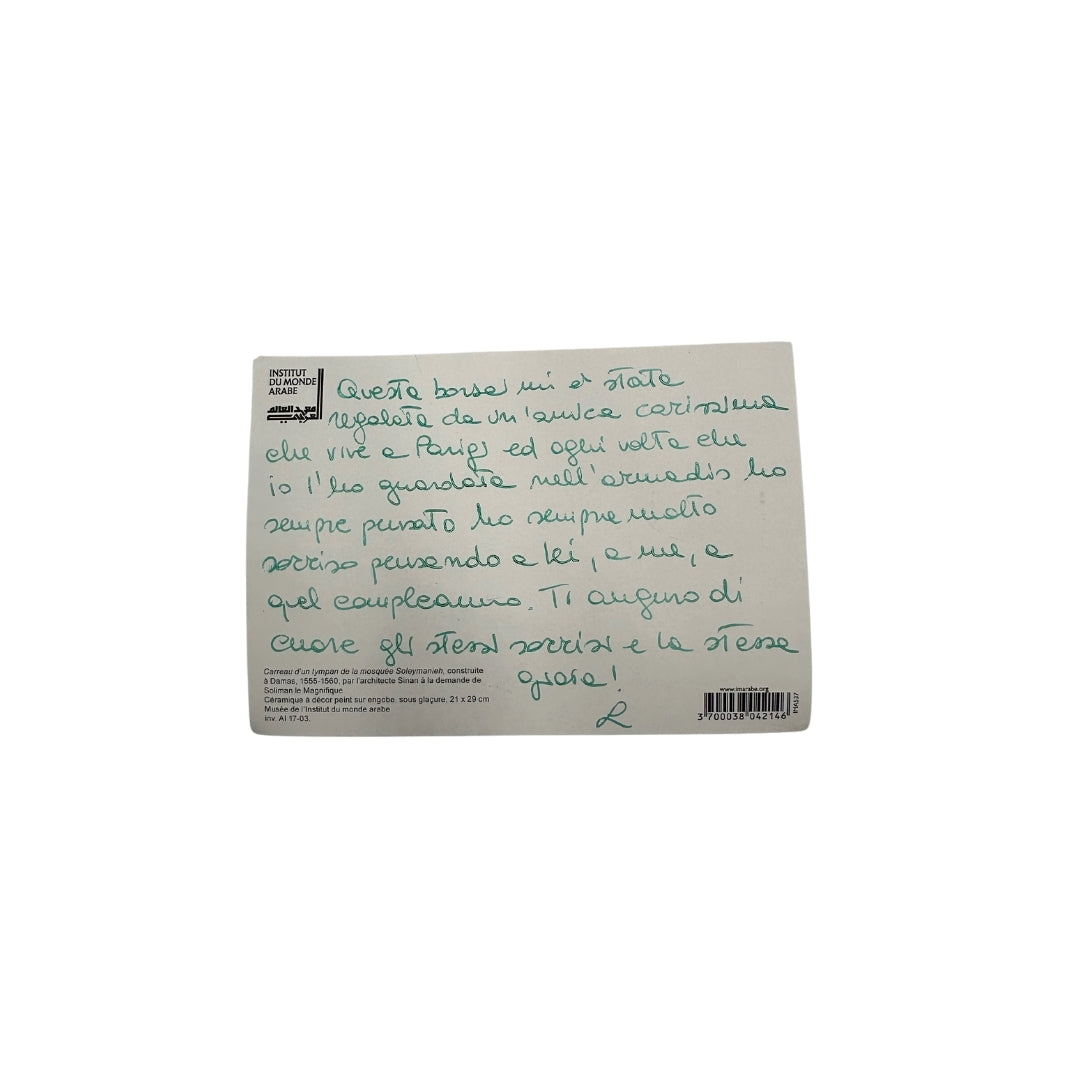 INSTITUT
DU MONDE
ARABE
معهد العالم
العربي
Questa borsa mi è stata
regalata da un'amica carissima
che vive a Parigi ed ogni volta che
io l'ho guardata nell'armadio ho
sempre pensato ho sempre molto
sorriso pensando a lei, a me, a
quel compleanno. Ti auguro di
cuore gli stessi sorrisi e la stessa
gioia!
L
Carreau d'un tympan de la mosquée Soleymanieh, construite
à Damas, 1555-1560, par l'architecte Sinan à la demande de
Soliman le Magnifique
Céramique à décor peint sur engobe, sous glaçure, 21 x 29 cm
Musée de l'Institut du monde arabe
inv. AI 17-03.
www.imarabe.org
3 700038 042146